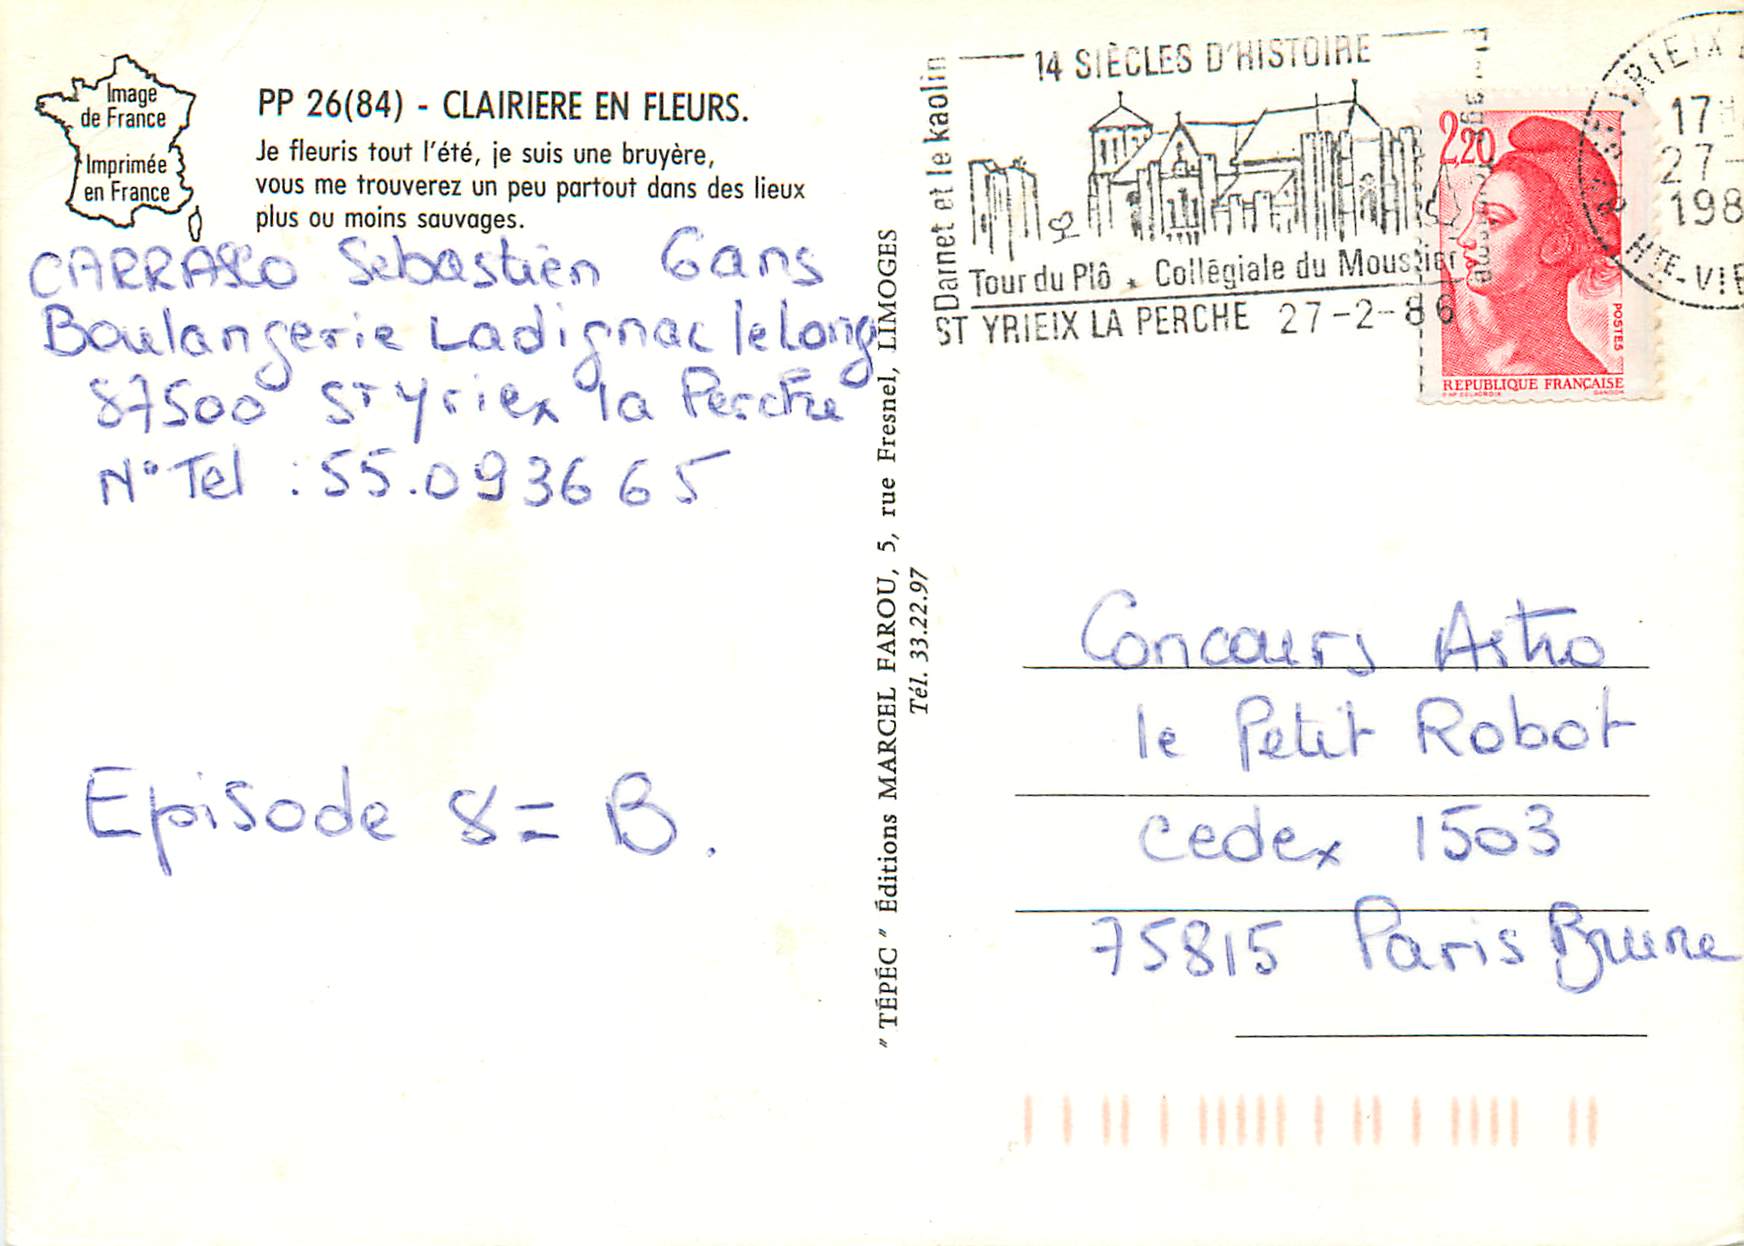 Image
de France
Imprimée
en France
PP 26(84) - CLAIRIERE EN FLEURS.
Je fleuris tout l'été, je suis une bruyère,
vous me trouverez un peu partout dans des lieux
plus ou moins sauvages.
CARRASCO Sébastien 6 ans
Boulangerie Ladignac le Long
87500 St Yrieix la Perche
N° Tel : 55.09 36 65
Episode 8 = B.
"TÉPÉC" Éditions MARCEL FAROU, 5, rue Fresnel, LIMOGES
Tél. 33.22.97
14 SIÈCLES D'HISTOIRE
Darnet et le kaolin
Tour du Plô * Collégiale du Moustier
ST YRIEIX LA PERCHE 27-2-86
YRIEIX
17H
27-
198
HTE-VIE
2,20
POSTES
REPUBLIQUE FRANÇAISE
D'AP. DELACROIX GANDON
Concours Astro
le Petit Robot
Cedex 1503
75815 Paris Brune